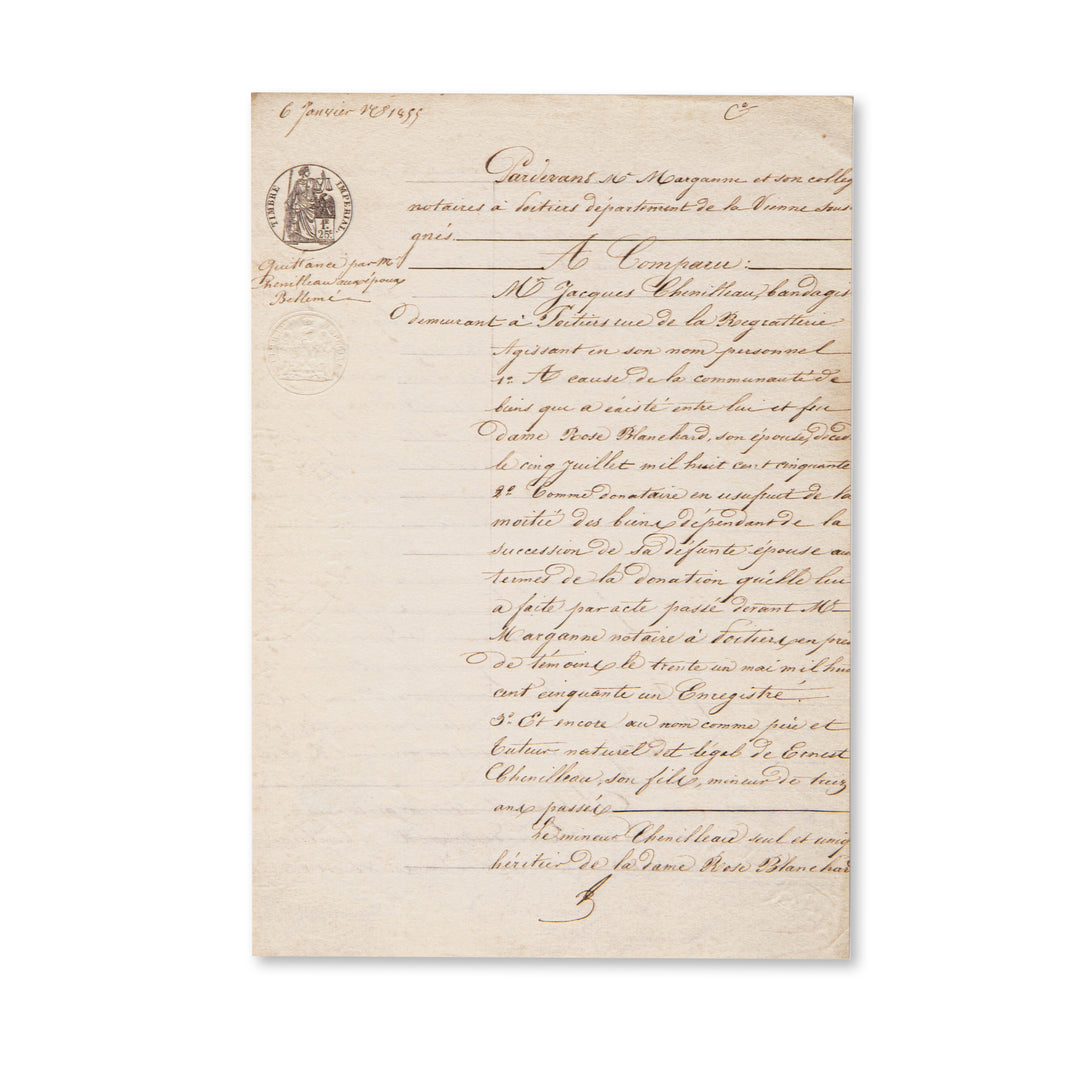 6 Janvier 1855
Pardevant Me Marganne et son colleg
notaires à Poitiers département de la Vienne sous
gnés.
TIMBRE IMPERIAL.
1F.
25c
Quittance par Mr
Chenilleau aux époux
Bellemé
A Comparu :
Mr Jacques Chenilleau, bandagis
demeurant à Poitiers rue de la Regratterie
Agissant en son nom personnel
1o A cause de la communauté de
biens que a éxisté entre lui et feu
dame Rose Blanchard, son épouse, décéd
le cinq Juillet mil huit cent cinquante
2o Comme donataire en usufruit de la
moitié des biens dépendant de la
succession de sa défunte épouse aux
termes de la donation qu'elle lui
a faite par acte passé devant Me
Marganne notaire à Poitiers en pré
de témoins le trente un mai mil hui
cent cinquante un Enregistré.
3o Et encore au nom comme père et
tuteur naturel et légal de Ernest
Chenilleau, son fils, mineur de treiz
ans passés
Le mineur Chenilleau seul et uniq
héritier de la dame Rose Blanchar